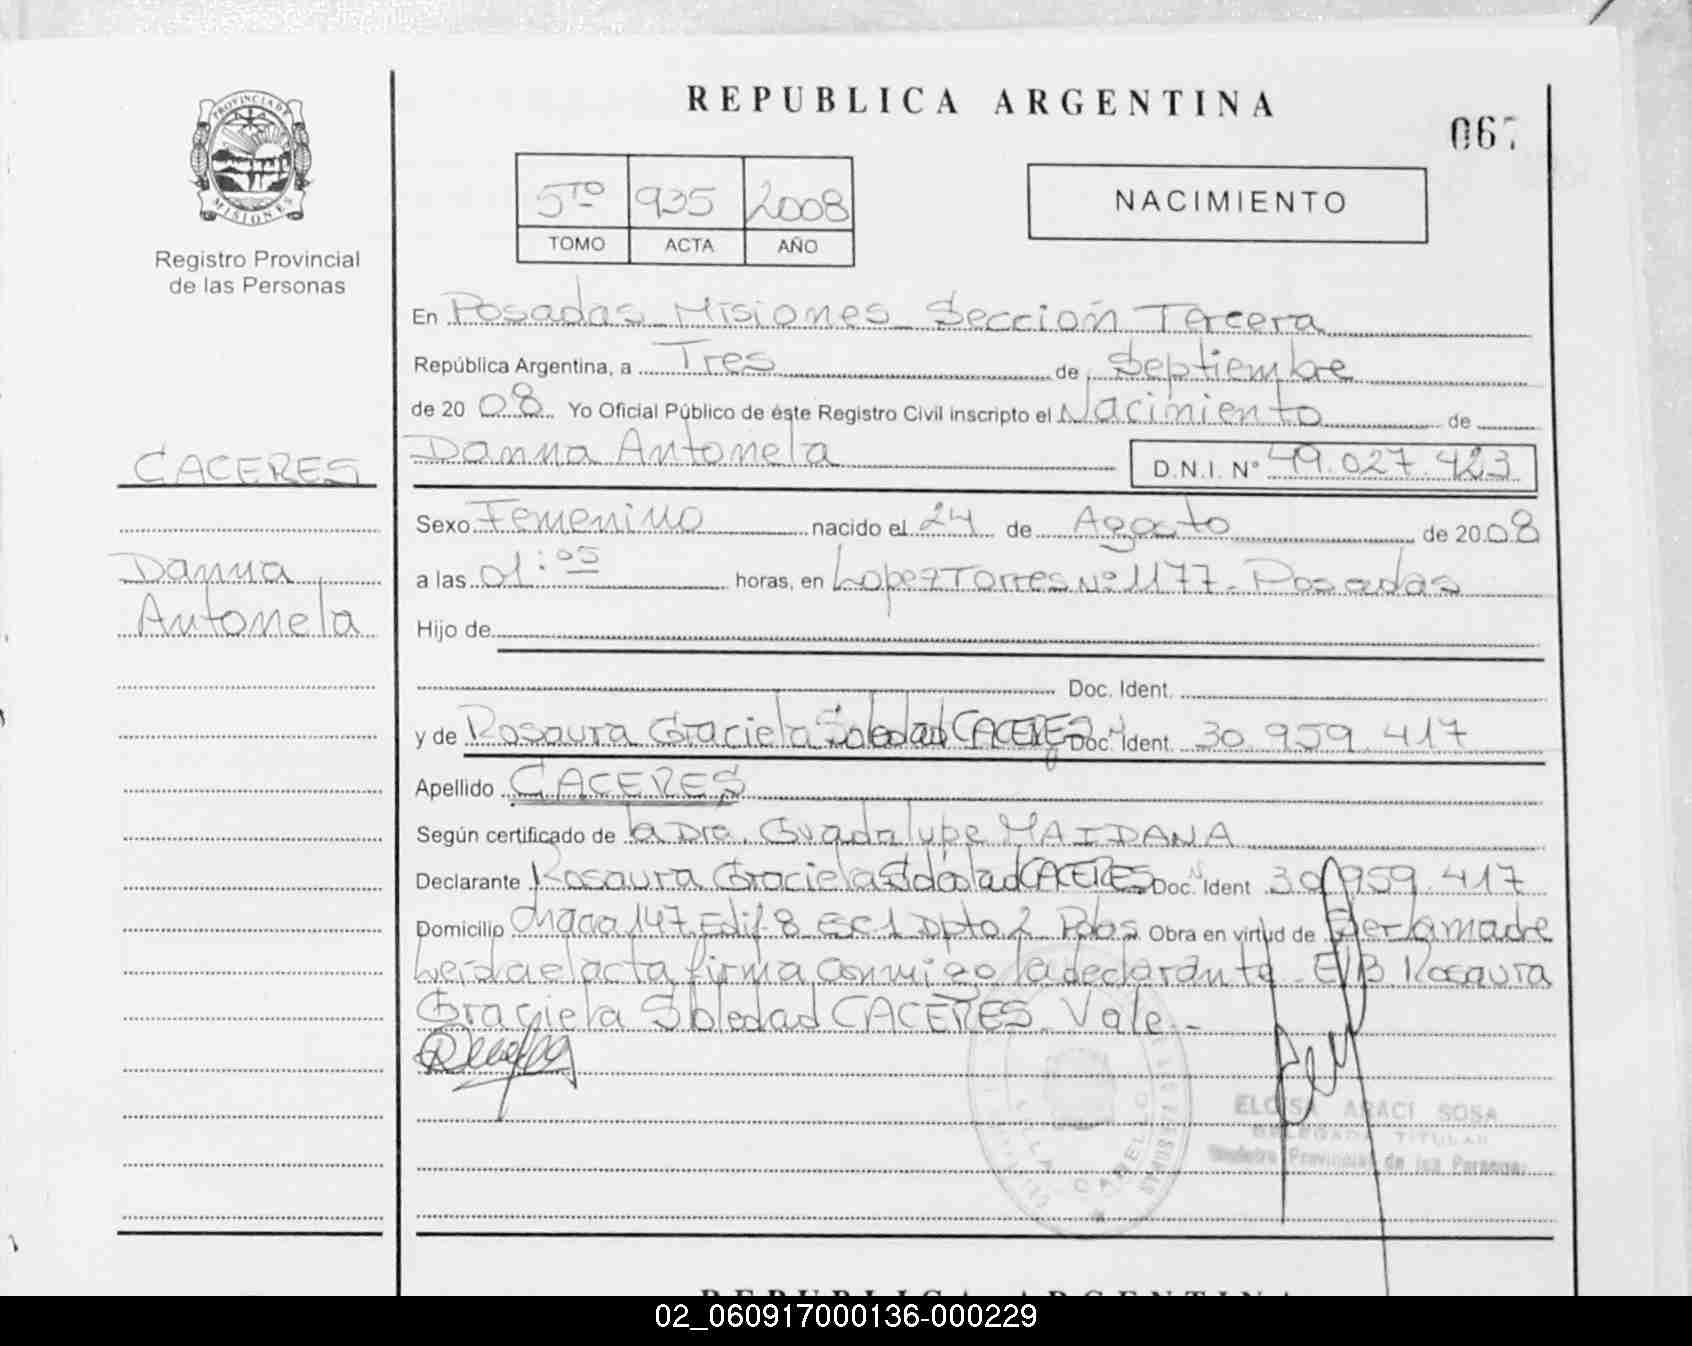 REPUBLICA ARGENTINA
PROVINCIA DE MISIONES
Registro Provincial
de las Personas
5TO 935 2008
TOMO ACTA AÑO
NACIMIENTO
En Posadas Misiones Sección Tercera
República Argentina, a Tres de Septiembre
de 20 08 Yo Oficial Público de éste Registro Civil inscripto el Nacimiento de
CACERES
Danna Antonela D.N.I. N° 49.027.423
Sexo Femenino nacido el 24 de Agosto de 20 08
Danna
Antonela
a las 01:05 horas, en Lopez Torres Nº 1177 - Posadas
Hijo de
Doc. Ident.
y de Rosaura Graciela Soledad CACERES Doc. Ident. 30.959.417
Apellido CACERES
Según certificado de la Dra. Guadalupe MAIDANA
Declarante Rosaura Graciela Soledad CACERES Doc. Ident 30.959.417
Domicilio Chaca 147 Edif 8 ESC 1 Dpto 2 Pdas Obra en virtud de Ser la madre
Leída el acta firma conmigo la declarante - E/B. Rosaura
Graciela Soledad CACERES. Vale.-
ELOISA ARACI SOSA
DELEGADA TITULAR
Provincial de las Personas
REPUBLICA ARGENTINA
02_060917000136-000229